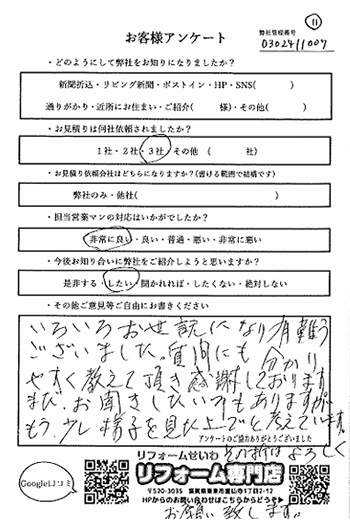 ⑪
お客様アンケート
弊社管理番号
0302411007
・どのようにして弊社をお知りになりましたか？
新聞折込・リビング新聞・ポストイン・HP・SNS(　　　)
通りがかり・近所にお住まい・ご紹介(　　　様)・その他(　　　)
・お見積りは何社依頼されましたか？
1社・2社・3社・その他 (　　　社)
・お見積り依頼会社はどちらになりますか？(書ける範囲で結構です)
弊社のみ・他社(　　　)
・担当営業マンの対応はいかがでしたか？
非常に良い・良い・普通・悪い・非常に悪い
・今後お知り合いに弊社をご紹介しようと思いますか？
是非する・したい・聞かれれば・したくない・絶対しない
・その他ご意見等ご自由にお書きください
いろいろお世話になり有難う
ございました。質問にも分かり
やすく教えて頂き感謝しております。
まだ、お聞きしたい事もありますが、
もう少し様子を見た上でと考えています。
アンケートのご協力ありがとうございました
その折はよろしく
リフォームせいわ
リフォーム専門店
Google口コミ
〒520-3035 滋賀県栗東市霊仙寺1丁目2-12
HPからのお問い合わせはこちらからどうぞ
お願い致します。